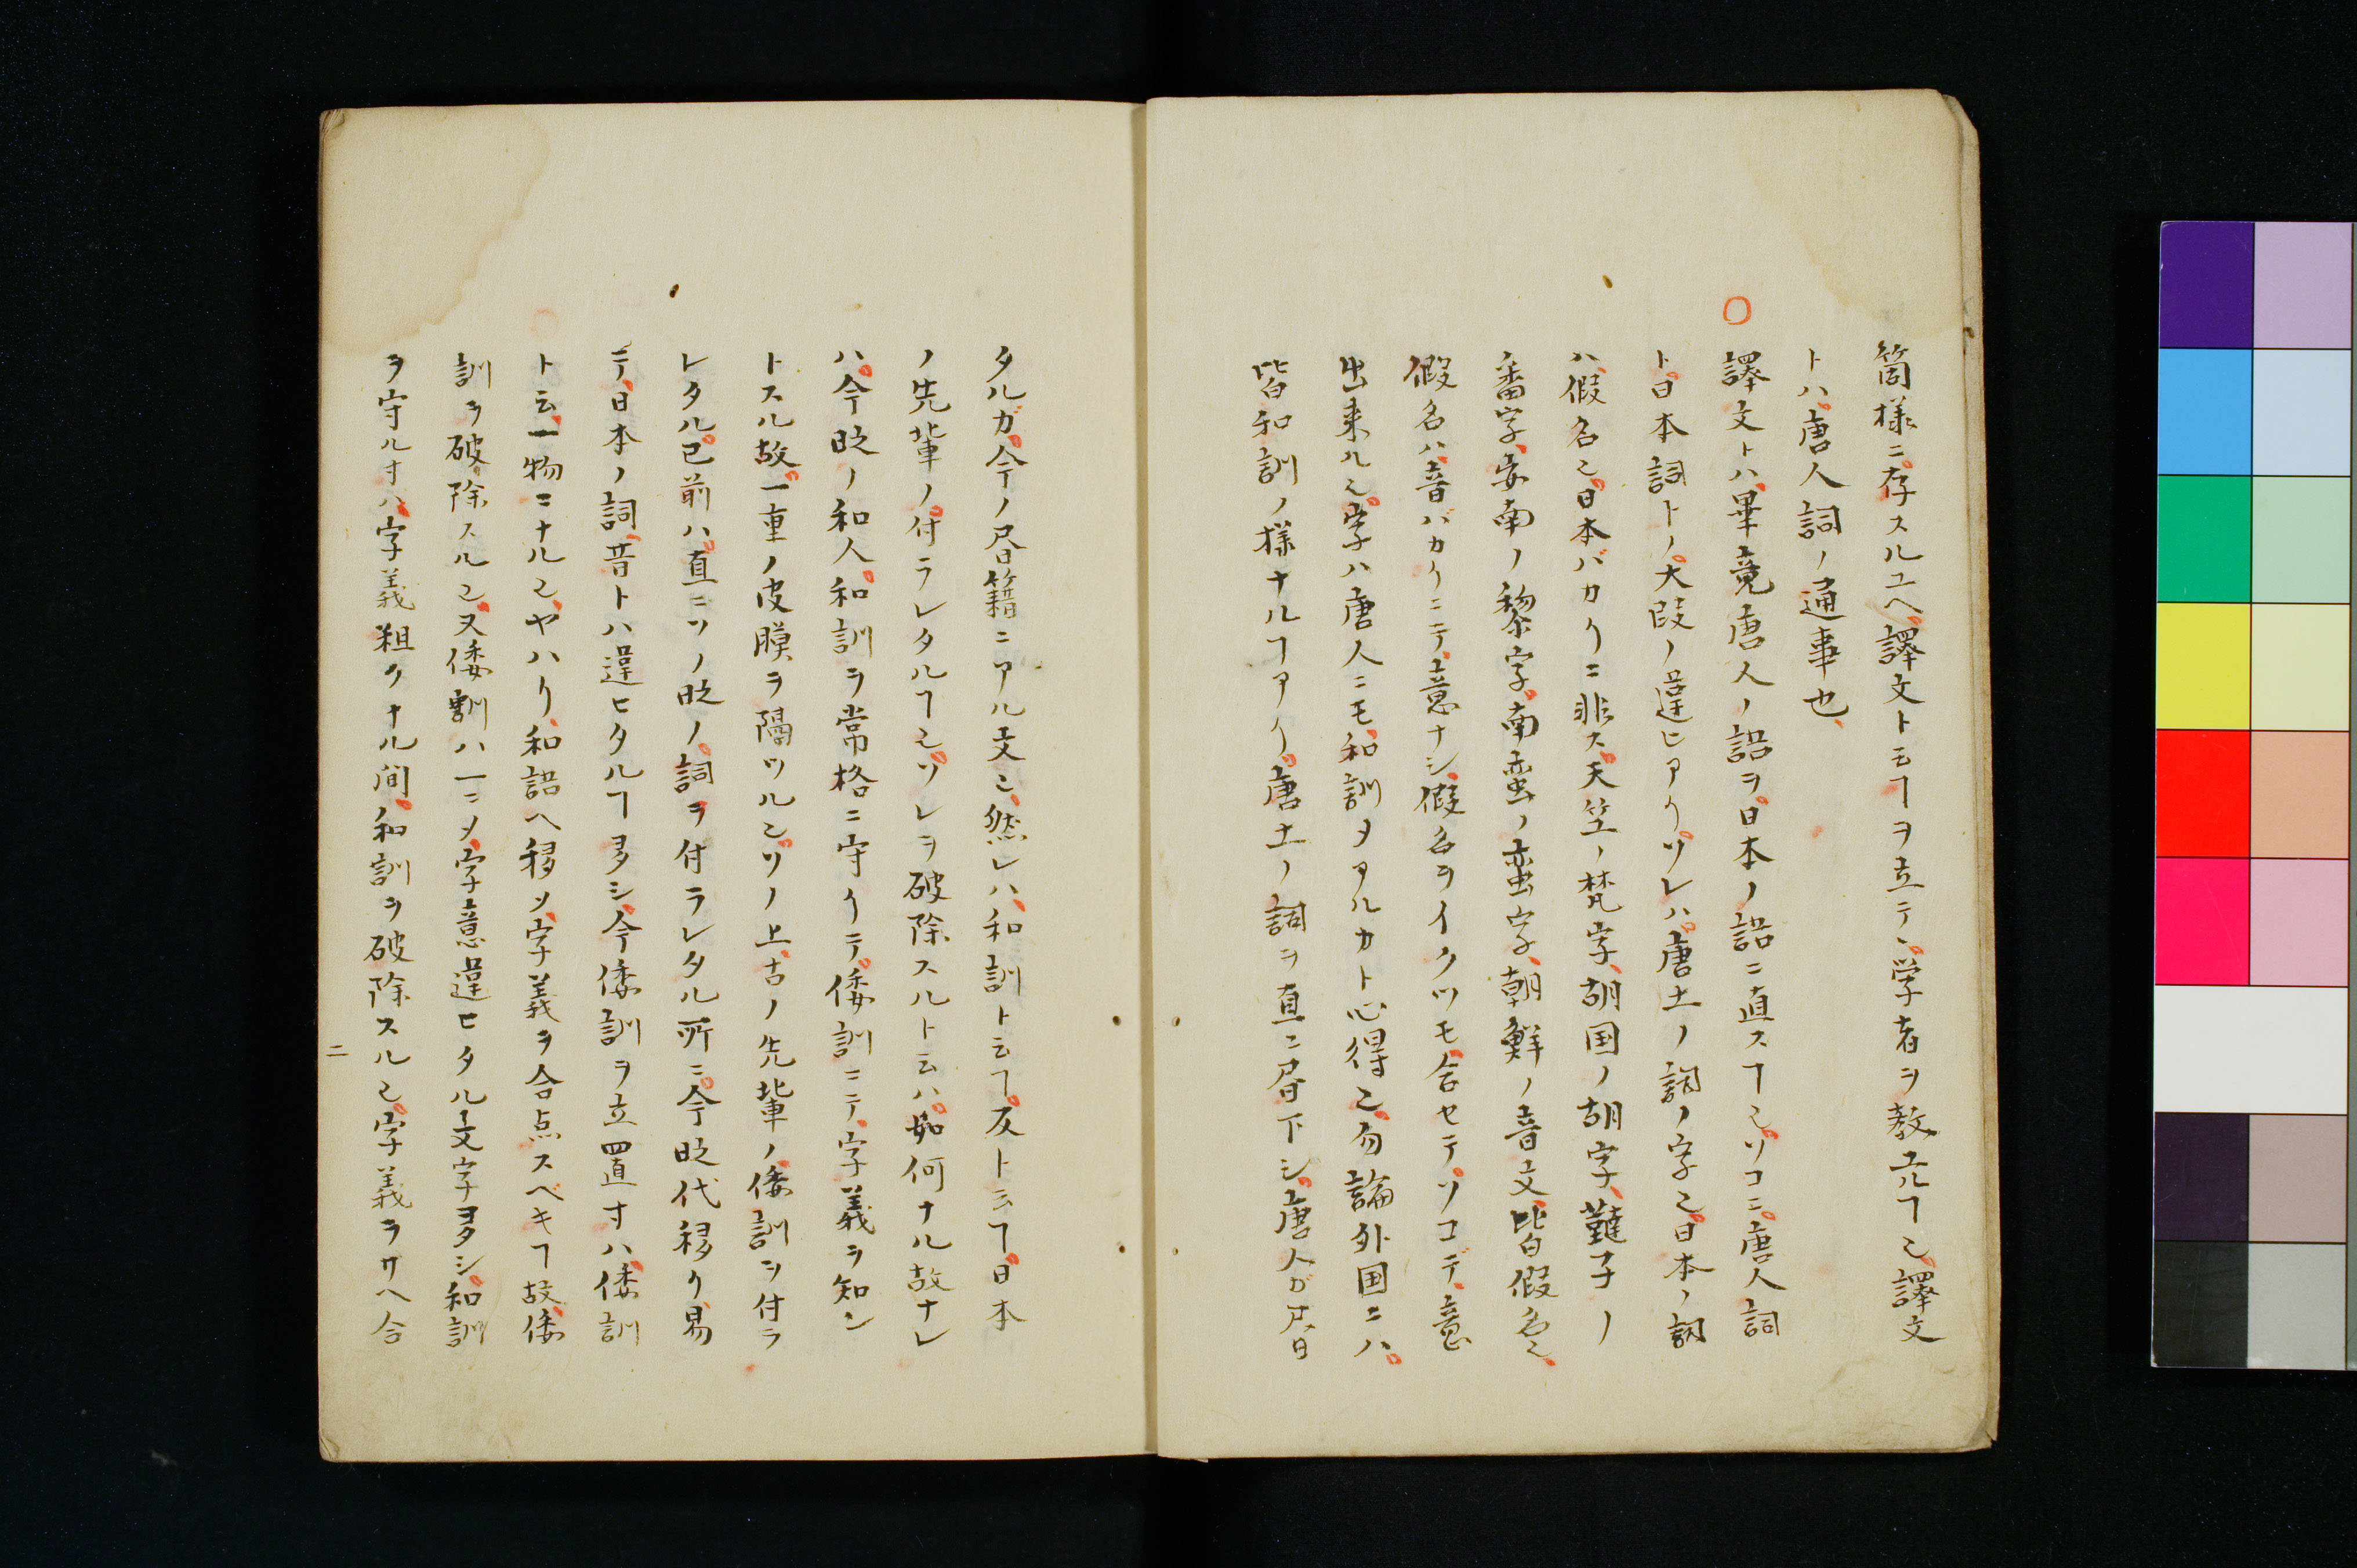 箇様ニ存スルユヘ、譯文ト云ヿヲ立テ、学者ヲ教ユルヿ也、譯文
トハ、唐人詞ノ通事也、
〇譯文トハ、畢竟唐人ノ語ヲ、日本ノ語ニ直スヿ也、ソコニ、唐人詞
ト、日本詞トノ、大段ノ違ヒアリ、ソレハ、唐土ノ詞ノ字也、日本ノ詞
ハ、假名也、日本バカリニ非ス、天竺ノ梵字、胡国ノ胡字、韃子ノ
番字、安南ノ黎字、南蛮ノ蛮字、朝鮮ノ音文、皆假名也、
假名ハ、音バカリニテ、意ナシ、假名ヲイクツモ合セテ、ソコデ、意
出来ル也、字ハ唐人ニモ、和訓タアルカト心得也、勿論外国ニハ、
皆和訓ノ様ナルヿアリ、唐土ノ詞ヲ直ニ昼下シ、唐人ガ昼
タルガ、今ノ昼籍ニアル文也、然レハ、和訓ト云ヿ、反ト云ヿ、日本
ノ先輩ノ、付ラレタルヿ也、ソレヲ破除スルト云ハ、如何ナル故ナレ
ハ、今時ノ和人、和訓ヲ常格ニ守リテ、倭訓ニテ、字義ヲ知ン
トスル故、一重ノ皮膜ヲ隔ツル也、ソノ上、古ノ先輩ノ、倭訓ヲ付ラ
レタル已前ハ、直ニソノ時ノ、詞ヲ付ラレタル所ニ、今時代移リ易
テ、日本ノ詞、昔トハ違ヒタルヿ多シ、今倭訓ヲ立置寸ハ、倭訓
ト云、一物ニナル也、ヤハリ、和語ヘ移ソ、字義ヲ合点スベキヿ故、倭
訓ヲ破除スル也、又倭訓ハ一ニメ、字意違ヒタル文字多シ、和訓
ヲ守ル寸ハ、字義粗クナル間、和訓ヲ破除スル也、字義ヲサヘ合
二